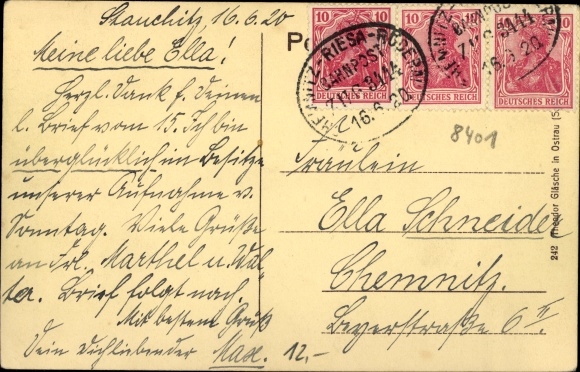 Stauchitz, 16.6.20
Meine liebe Ella!
Herzl. Dank f. Deinen
l. Brief vom 15. Ich bin
überglücklich im Besitze
unserer Aufnahme v.
Sonntag. Viele Grüße
an Frl. Marthel u. Wal-
ter. Brief folgt nach.
Mit bestem Gruß
Dein Dichliebender Max.
12,-
10 10 10
DEUTSCHES REICH
DEUTSCHES REICH
DEUTSCHES REICH
CHEMNITZ-RIESA-RÖDERAU
BAHNPOST
ZUG 5114
16.6.20
BAHNPOST
ZUG 5114
16.6.20
8401
Fräulein
Ella Schneider
Chemnitz.
Beyerstraße 6 II.
242 Theodor Gläsche in Ostrau (S.